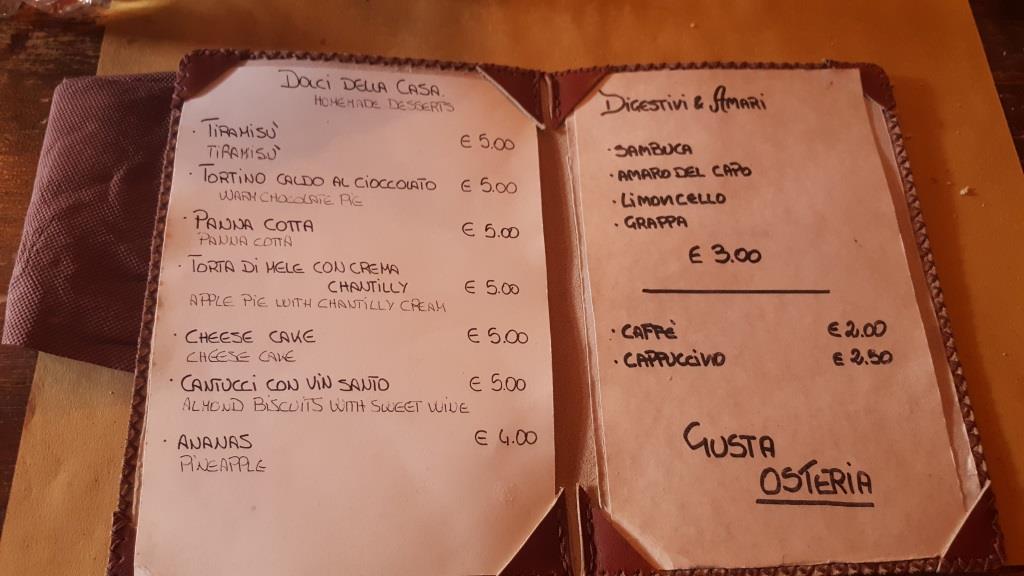 Dolci Della Casa.
Homemade Desserts
· Tiramisù € 5.00
Tiramisù
· Tortino caldo al cioccolato € 5.00
Warm chocolate pie
· Panna cotta € 5.00
Panna cotta
· Torta di mele con crema
chantilly € 5.00
Apple pie with chantilly cream
· Cheese cake € 5.00
Cheese cake
· Cantucci con vin santo € 5.00
Almond biscuits with sweet wine
· Ananas € 4.00
Pineapple
Digestivi & Amari
· Sambuca
· Amaro del Capo
· Limoncello
· Grappa
€ 3.00
· Caffè € 2.00
· Cappuccino € 2.50
Gusta
Osteria